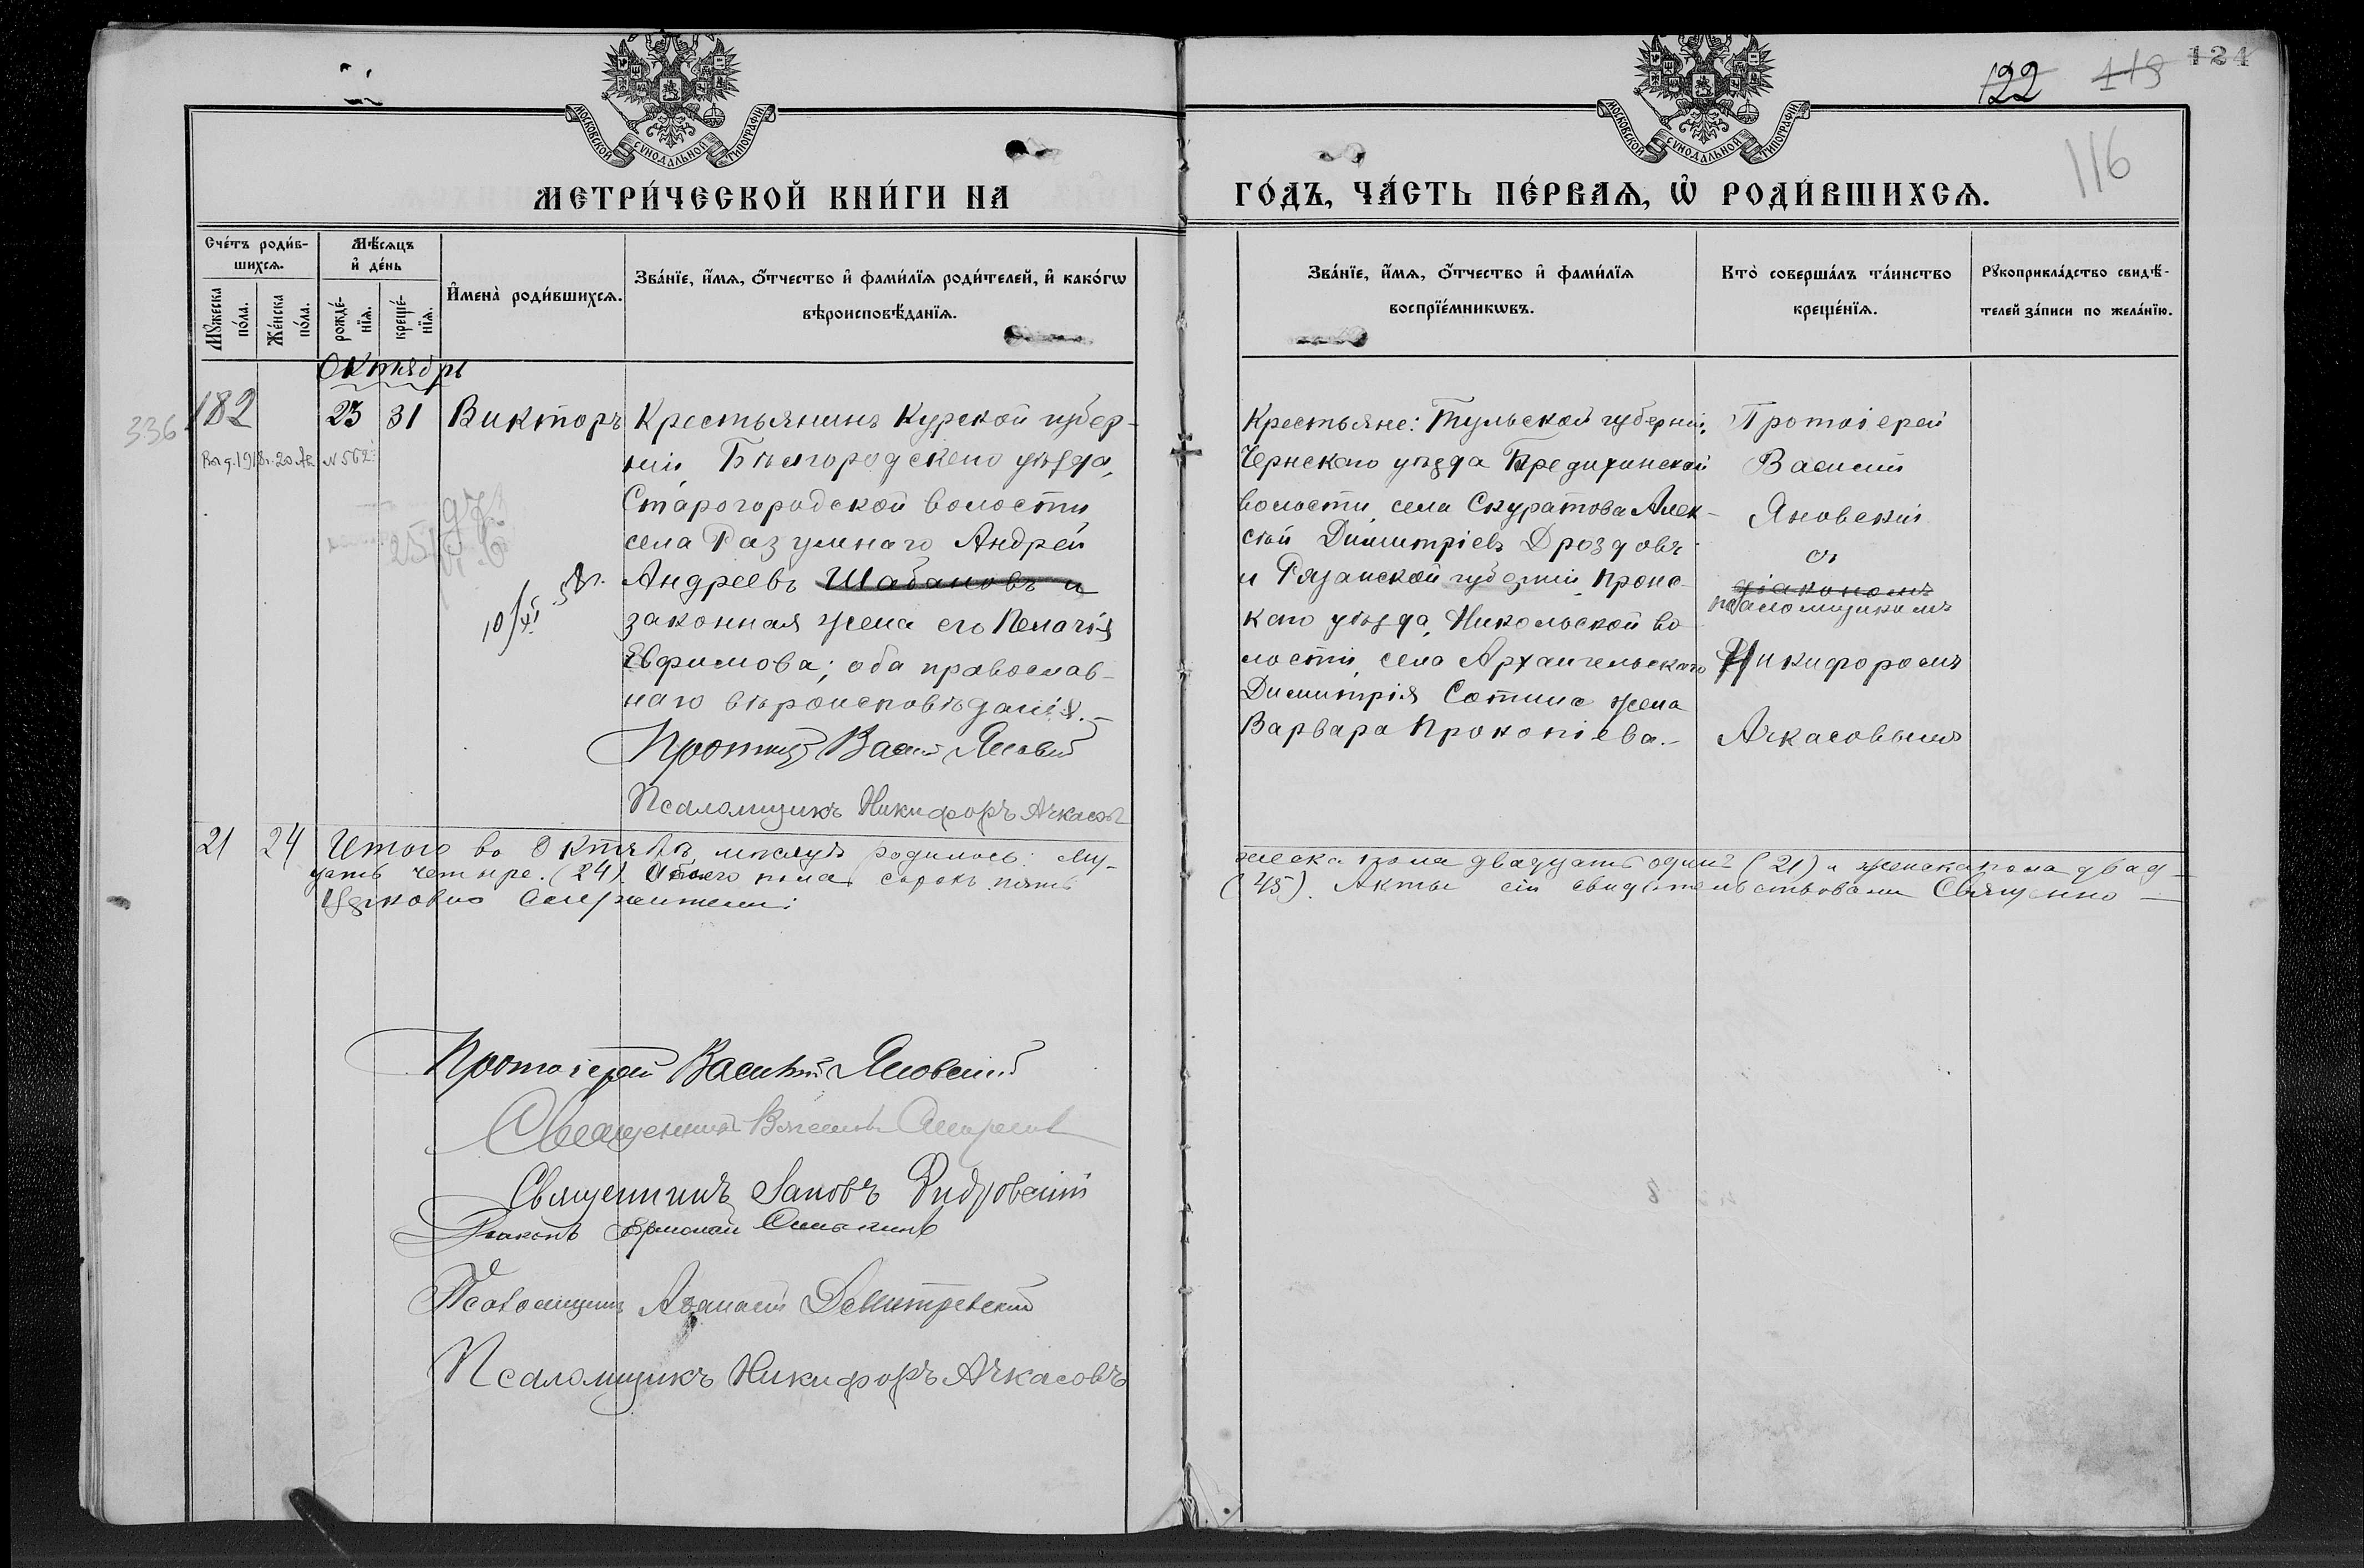 124
122
119
116
МОСКОВСКОЙ СѴНОДАЛЬНОЙ ТИПОГРАФІИ
МОСКОВСКОЙ СѴНОДАЛЬНОЙ ТИПОГРАФІИ
МЕТРИ́ЧЕСКОЙ КНИ́ГИ НА
ГО́ДЪ, ЧА́СТЬ ПЕ́РВАѦ, Ѡ҆ РОДИ́ВШИХСѦ.
Сче́тъ роди́в-
шихсѧ.
Мꙋ́жеска
по́ла.
Же́нска
по́ла.
Мѣ́сѧцъ
и҆ де́нь
рожде́-
нїѧ.
креще́-
нїѧ.
И҆мена̀ роди́вшихсѧ.
Зва́нїе, и҆́мѧ, ѻ҆́тчество и҆ фами́лїѧ роди́телей, и҆ како́гѡ
вѣроисповѣ́данїѧ.
Зва́нїе, и҆́мѧ, ѻ҆́тчество и҆ фами́лїѧ
воспрїе́мникѡвъ.
Кто̀ соверша́лъ та́инство
креще́нїѧ.
Рꙋкоприкла́дство свидѣ́-
телей за́писи по жела́нїю.
Октябрь
336
182
23
31
Викторъ
1918 г. 20 № 562
Крестьянинъ Курской губер-
ніи Бѣлгородскаго уѣзда,
Старогородской волости
села Разумнаго Андрей
Андреевъ Шабановъ и
законная жена его Пелагія
Евфимова; оба православ-
наго вѣроисповѣданія.-
Василій Яновскій
Псаломщикъ Никифоръ Ачкасовъ
Крестьяне: Тульской губерніи,
Чернскаго уѣзда
волости, села Скуратова Алек-
сѣй Димитріевъ Дроздовъ
и Рязанской губерніи, Пронс-
каго уѣзда, Никольской во
лости, села Архангельскаго
Димитрія Сотина жена
Варвара Прокопіева.-
Протоіерей
Василій
Яновскій
съ
діакономъ
псаломщикомъ
Никифоромъ
Ачкасовымъ
21
24
Итого въ Октябрѣ мѣсяцѣ родилось: му-
жеска пола двадцать одинъ (21) и женска пола двад-
цать четыре. (24). Обоего пола сорокъ пять
(45). Акты сіи свидѣтельствовали Священно-
Церковно Служители:
Протоіерей Василій Яновскій
Священникъ
Священникъ Іаковъ
Діаконъ Ермолай
Псаломщикъ Аѳанасій Димитревскій
Псаломщикъ Никифоръ Ачкасовъ